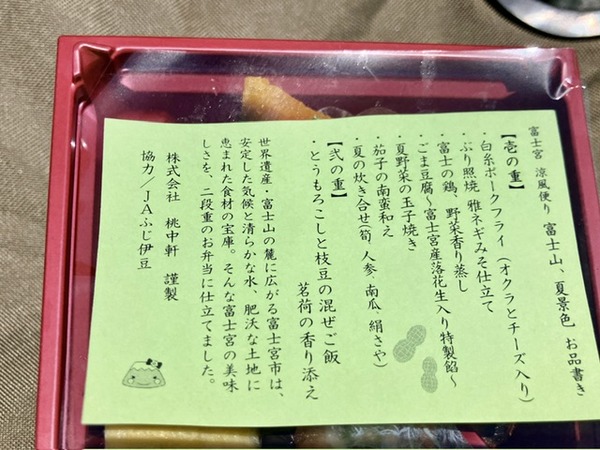 富士宮 涼風便り 富士山、夏景色 お品書き
【壱の重】
・白糸ポークフライ（オクラとチーズ入り）
・ぶり照焼 雅ネギみそ仕立て
・富士の鶏、野菜香り蒸し
・ごま豆腐～富士宮産落花生入り特製餡～
・夏野菜の玉子焼き
・茄子の南蛮和え
・夏の炊き合せ(筍、人参、南瓜、絹さや)
【弐の重】
・とうもろこしと枝豆の混ぜご飯
茗荷の香り添え
世界遺産・富士山の麓に広がる富士宮市は、
安定した気候と清らかな水、肥沃な土地に
恵まれた食材の宝庫。そんな富士宮の美味
しさを、二段重のお弁当に仕立てました。
株式会社 桃中軒 謹製
協力／ＪＡふじ伊豆